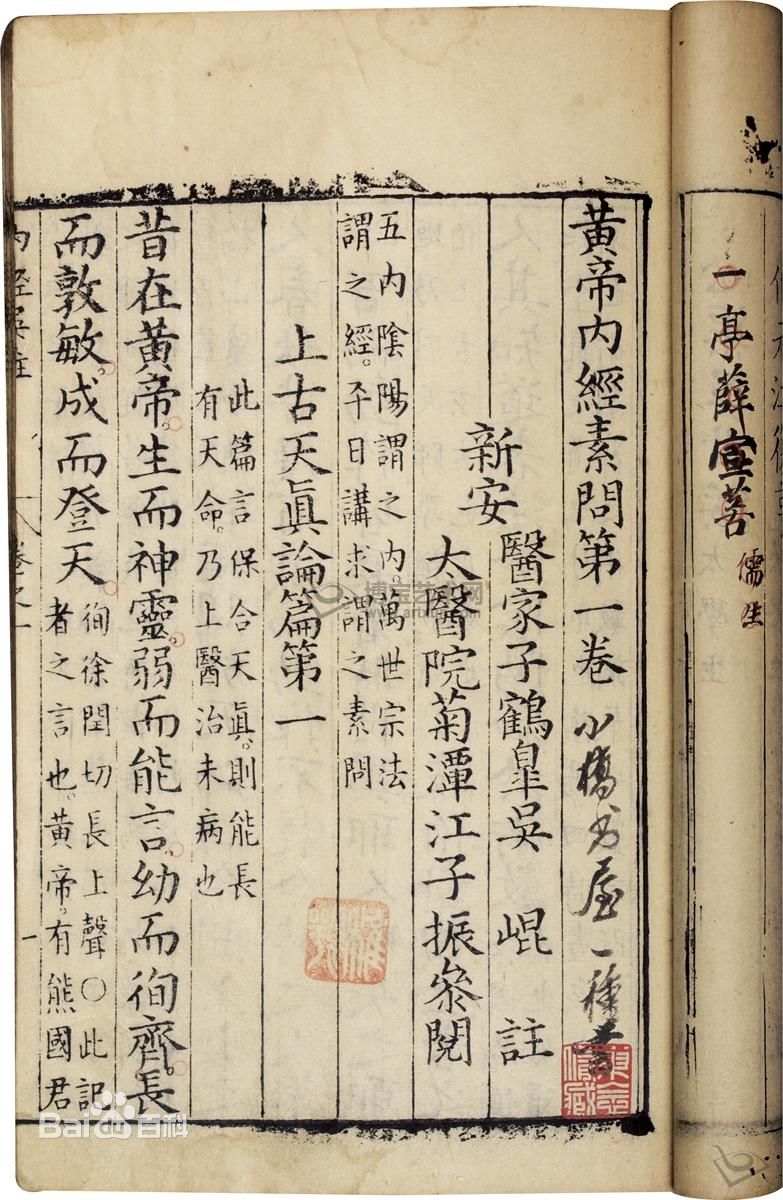 一亭薛宣菩
儒生
黃帝內經素問第一卷
小橋书屋一種
新安
醫家子鶴臯吳 崐 註
太醫院菊潭江子振參閱
五內陰陽謂之內。萬世宗法
謂之經。平日講求謂之素問
上古天眞論篇第一
此篇言保合天眞。則能長
有天命。乃上醫治未病也
昔在黃帝。生而神靈。弱而能言。幼而徇齊。長
而敦敏。成而登天。
徇徐閏切長上聲○此記
者之言也。黃帝。有熊國君
內經吳註
卷之一
一
Bai百科
博宝艺术网